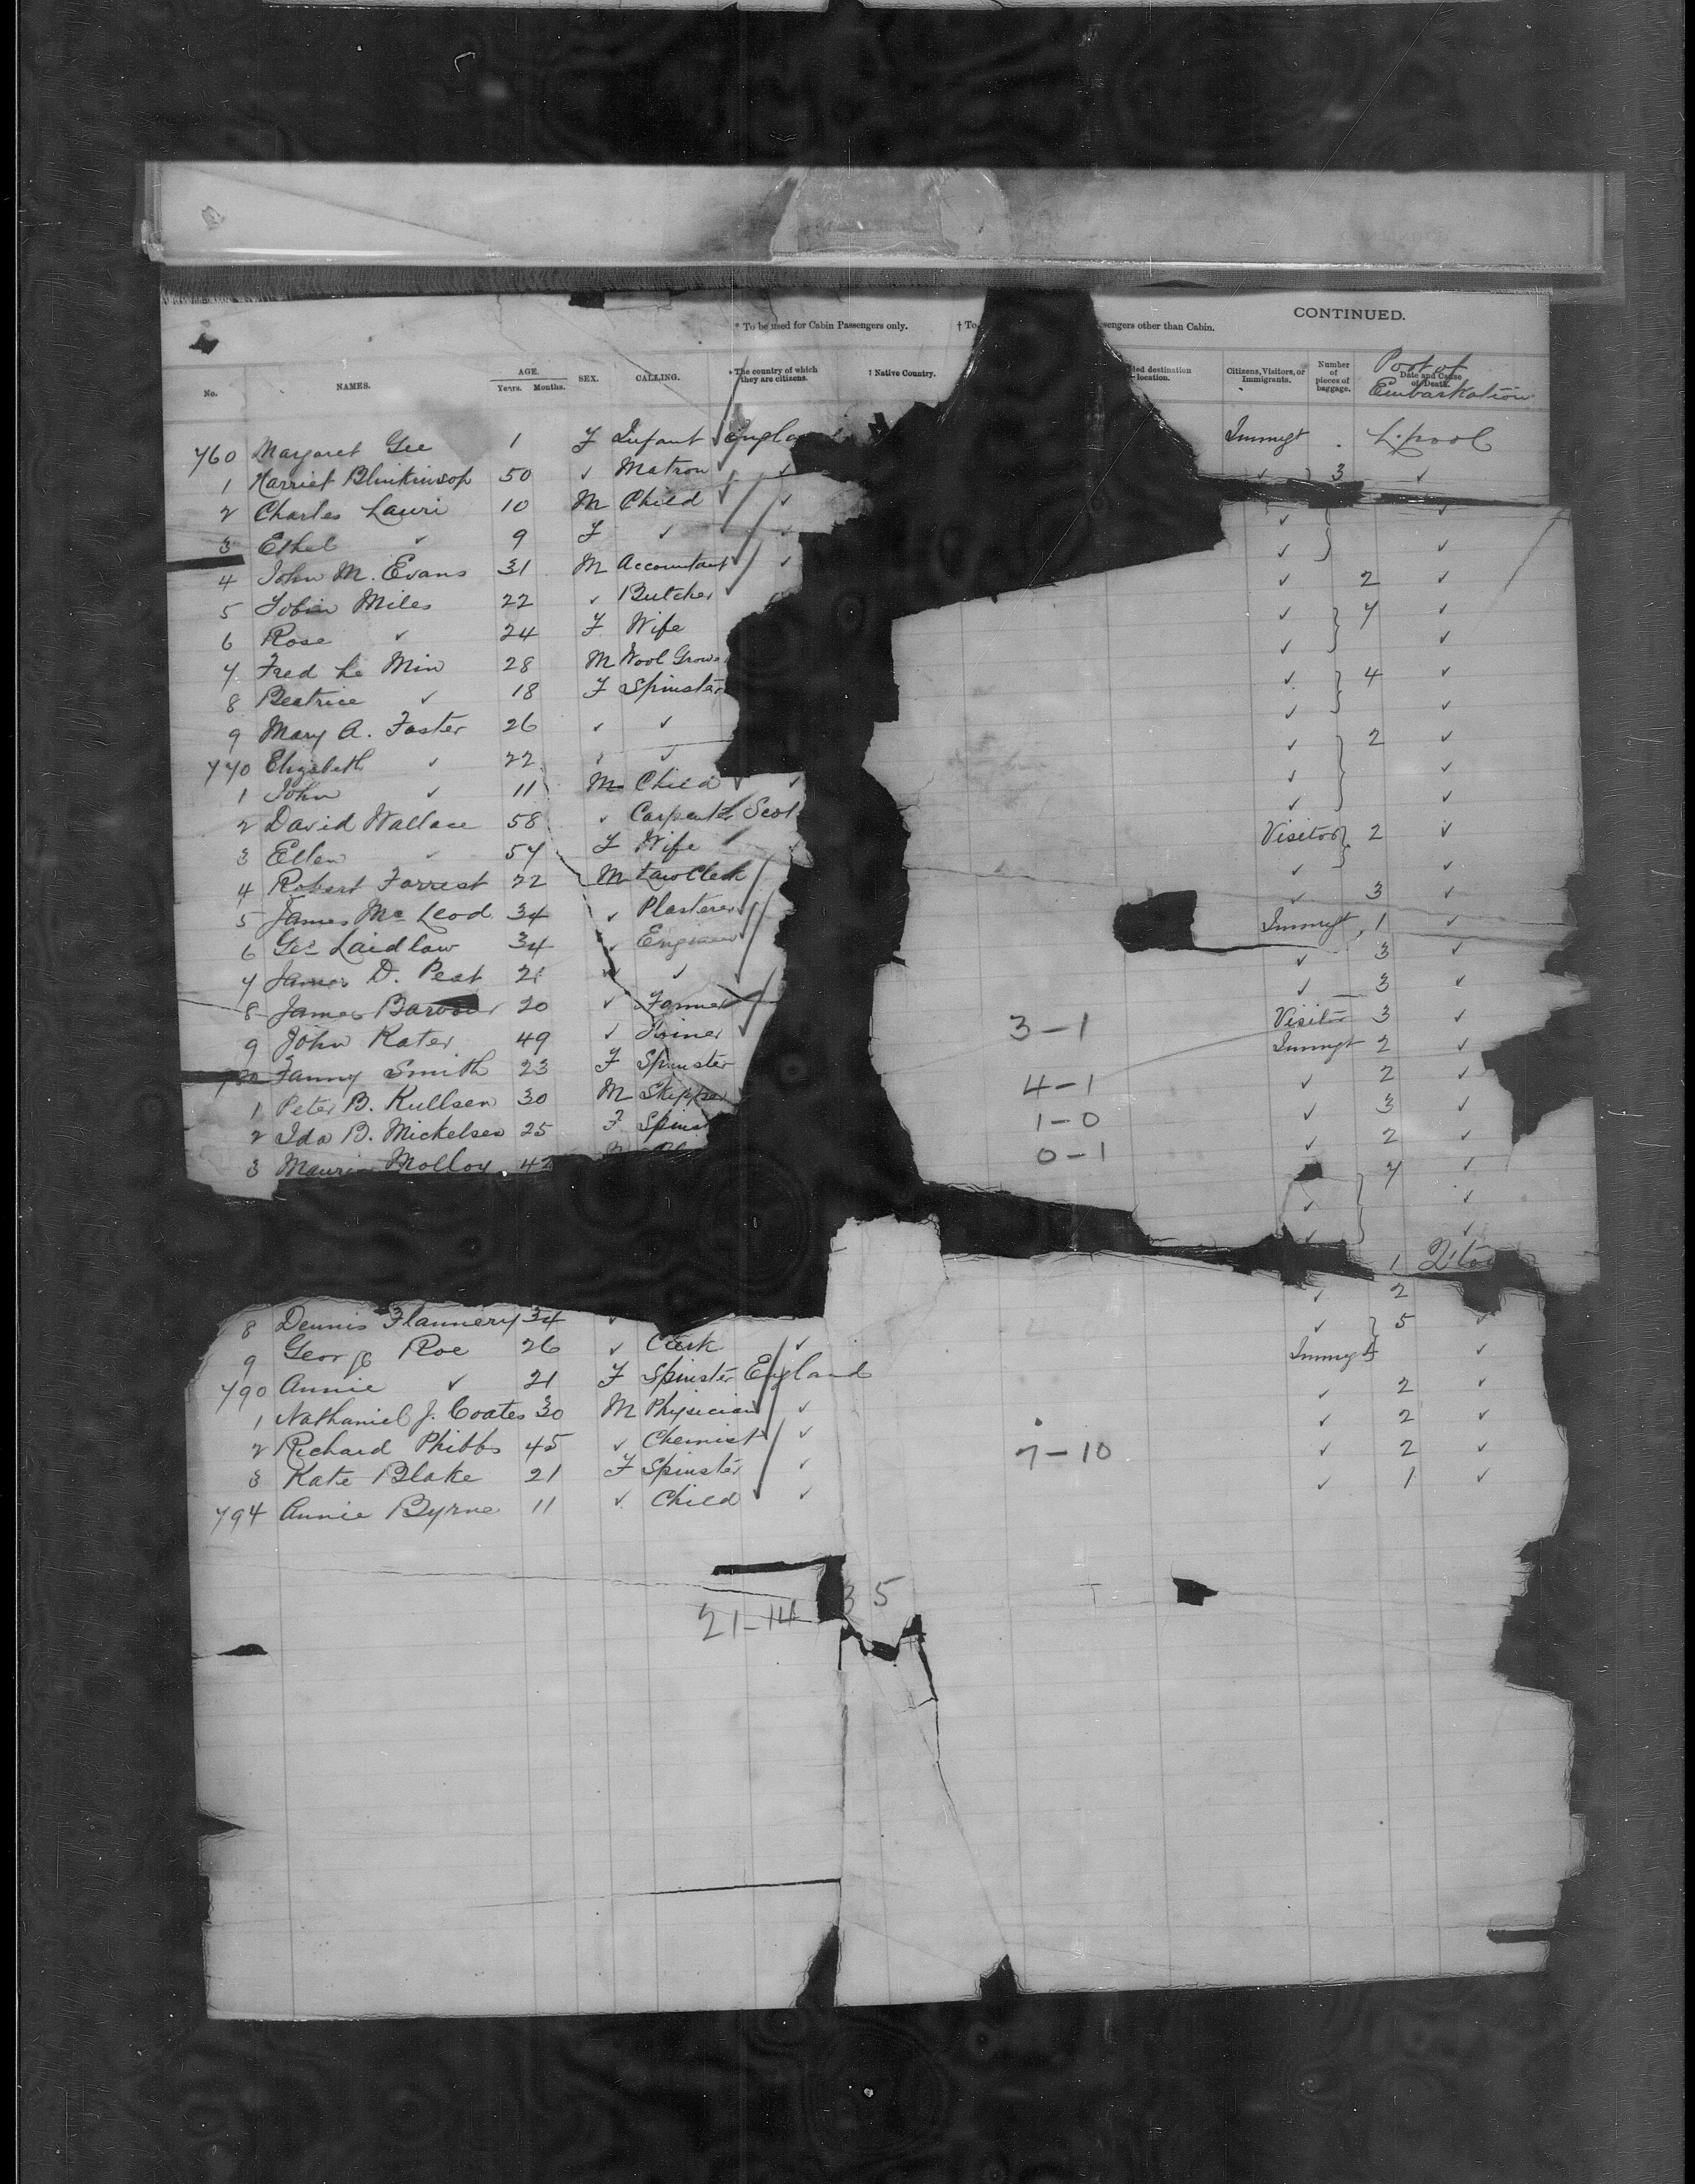 CONTINUED.
* To be used for Cabin Passengers only. † To sengers other than Cabin.
No. NAMES. AGE. Years. Months. SEX. CALLING. * The country of which they are citizens. † Native Country. ded destination location. Citizens, Visitors, or Immigrants. Number of pieces of baggage. Date and Cause of Death. Port of Embarkation
760 Margaret Gee 1 F Infant ✓ Immigt . L.pool
1 Harriet Blinkinsop 50 ✓ Matron ✓ ✓ ✓ 3 ✓
2 Charles Lauri 10 M Child ✓ ✓ ✓ ✓
3 Ethel ✓ 9 F ✓ ✓ ✓ ✓ ✓
4 John M. Evans 31 M Accountant ✓ ✓ ✓ 2 ✓
5 Miles 22 ✓ Butcher ✓ 7 ✓
6 Rose ✓ 24 F Wife ✓ ✓
7 Fred Le Min 28 M Wool Grower ✓ 4 ✓
8 Beatrice ✓ 18 F Spinster ✓ ✓
9 Mary A. Foster 26 ✓ ✓ ✓ 2 ✓
770 Elizabeth ✓ 22 ✓ ✓ ✓ ✓
1 John ✓ 11 M Child ✓ ✓ ✓ ✓
2 David Wallace 58 ✓ Carpenter Scot Visitor 2 ✓
3 Ellen ✓ 57 F Wife ✓ ✓ ✓
4 Robert Forrest 22 M Law Clerk ✓ 3 ✓
5 James McLeod 34 ✓ Plasterer Immigt 1 ✓
6 Geo Laidlaw 34 ✓ Engineer ✓ 3 ✓
7 James D. Peat 21 ✓ ✓ ✓ 3 ✓
8 James 20 ✓ Farmer 3-1 Visitor 3 ✓
9 John Kater 49 ✓ Joiner Immigt 2 ✓
780 Fanny Smith 23 F Spinster 4-1 ✓ 2 ✓
1 Peter B. Kullsen 30 M Skipper 1-0 ✓ 3 ✓
2 Ida B. Mickelsen 25 F Spins 0-1 ✓ 2 ✓
3 Molloy 42 7 ✓
✓ ✓
✓ ✓
1
✓ 2
8 Dennis Flannery 34 ✓ ✓ 5 ✓
9 George Roe 26 ✓ Clerk ✓ Immigt ✓
790 Annie ✓ 21 F Spinster England ✓ 2 ✓
1 Nathaniel J. Coates 30 M Physician ✓ ✓ 2 ✓
2 Richard Phibbs 45 ✓ Chemist ✓ 7-10 ✓ 2 ✓
3 Kate Blake 21 F Spinster ✓ ✓ 1 ✓
794 Annie Byrne 11 ✓ Child ✓ ✓
21-14 35